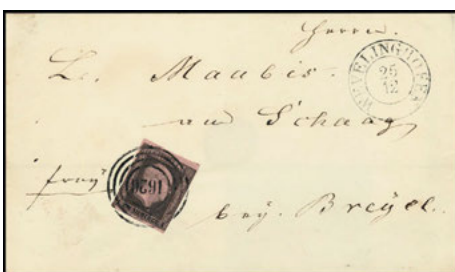 Herrn
L. Maubis.
WEVELINGHOVEN
25
12
und Schaag
franco
1626
bey. Breyel.